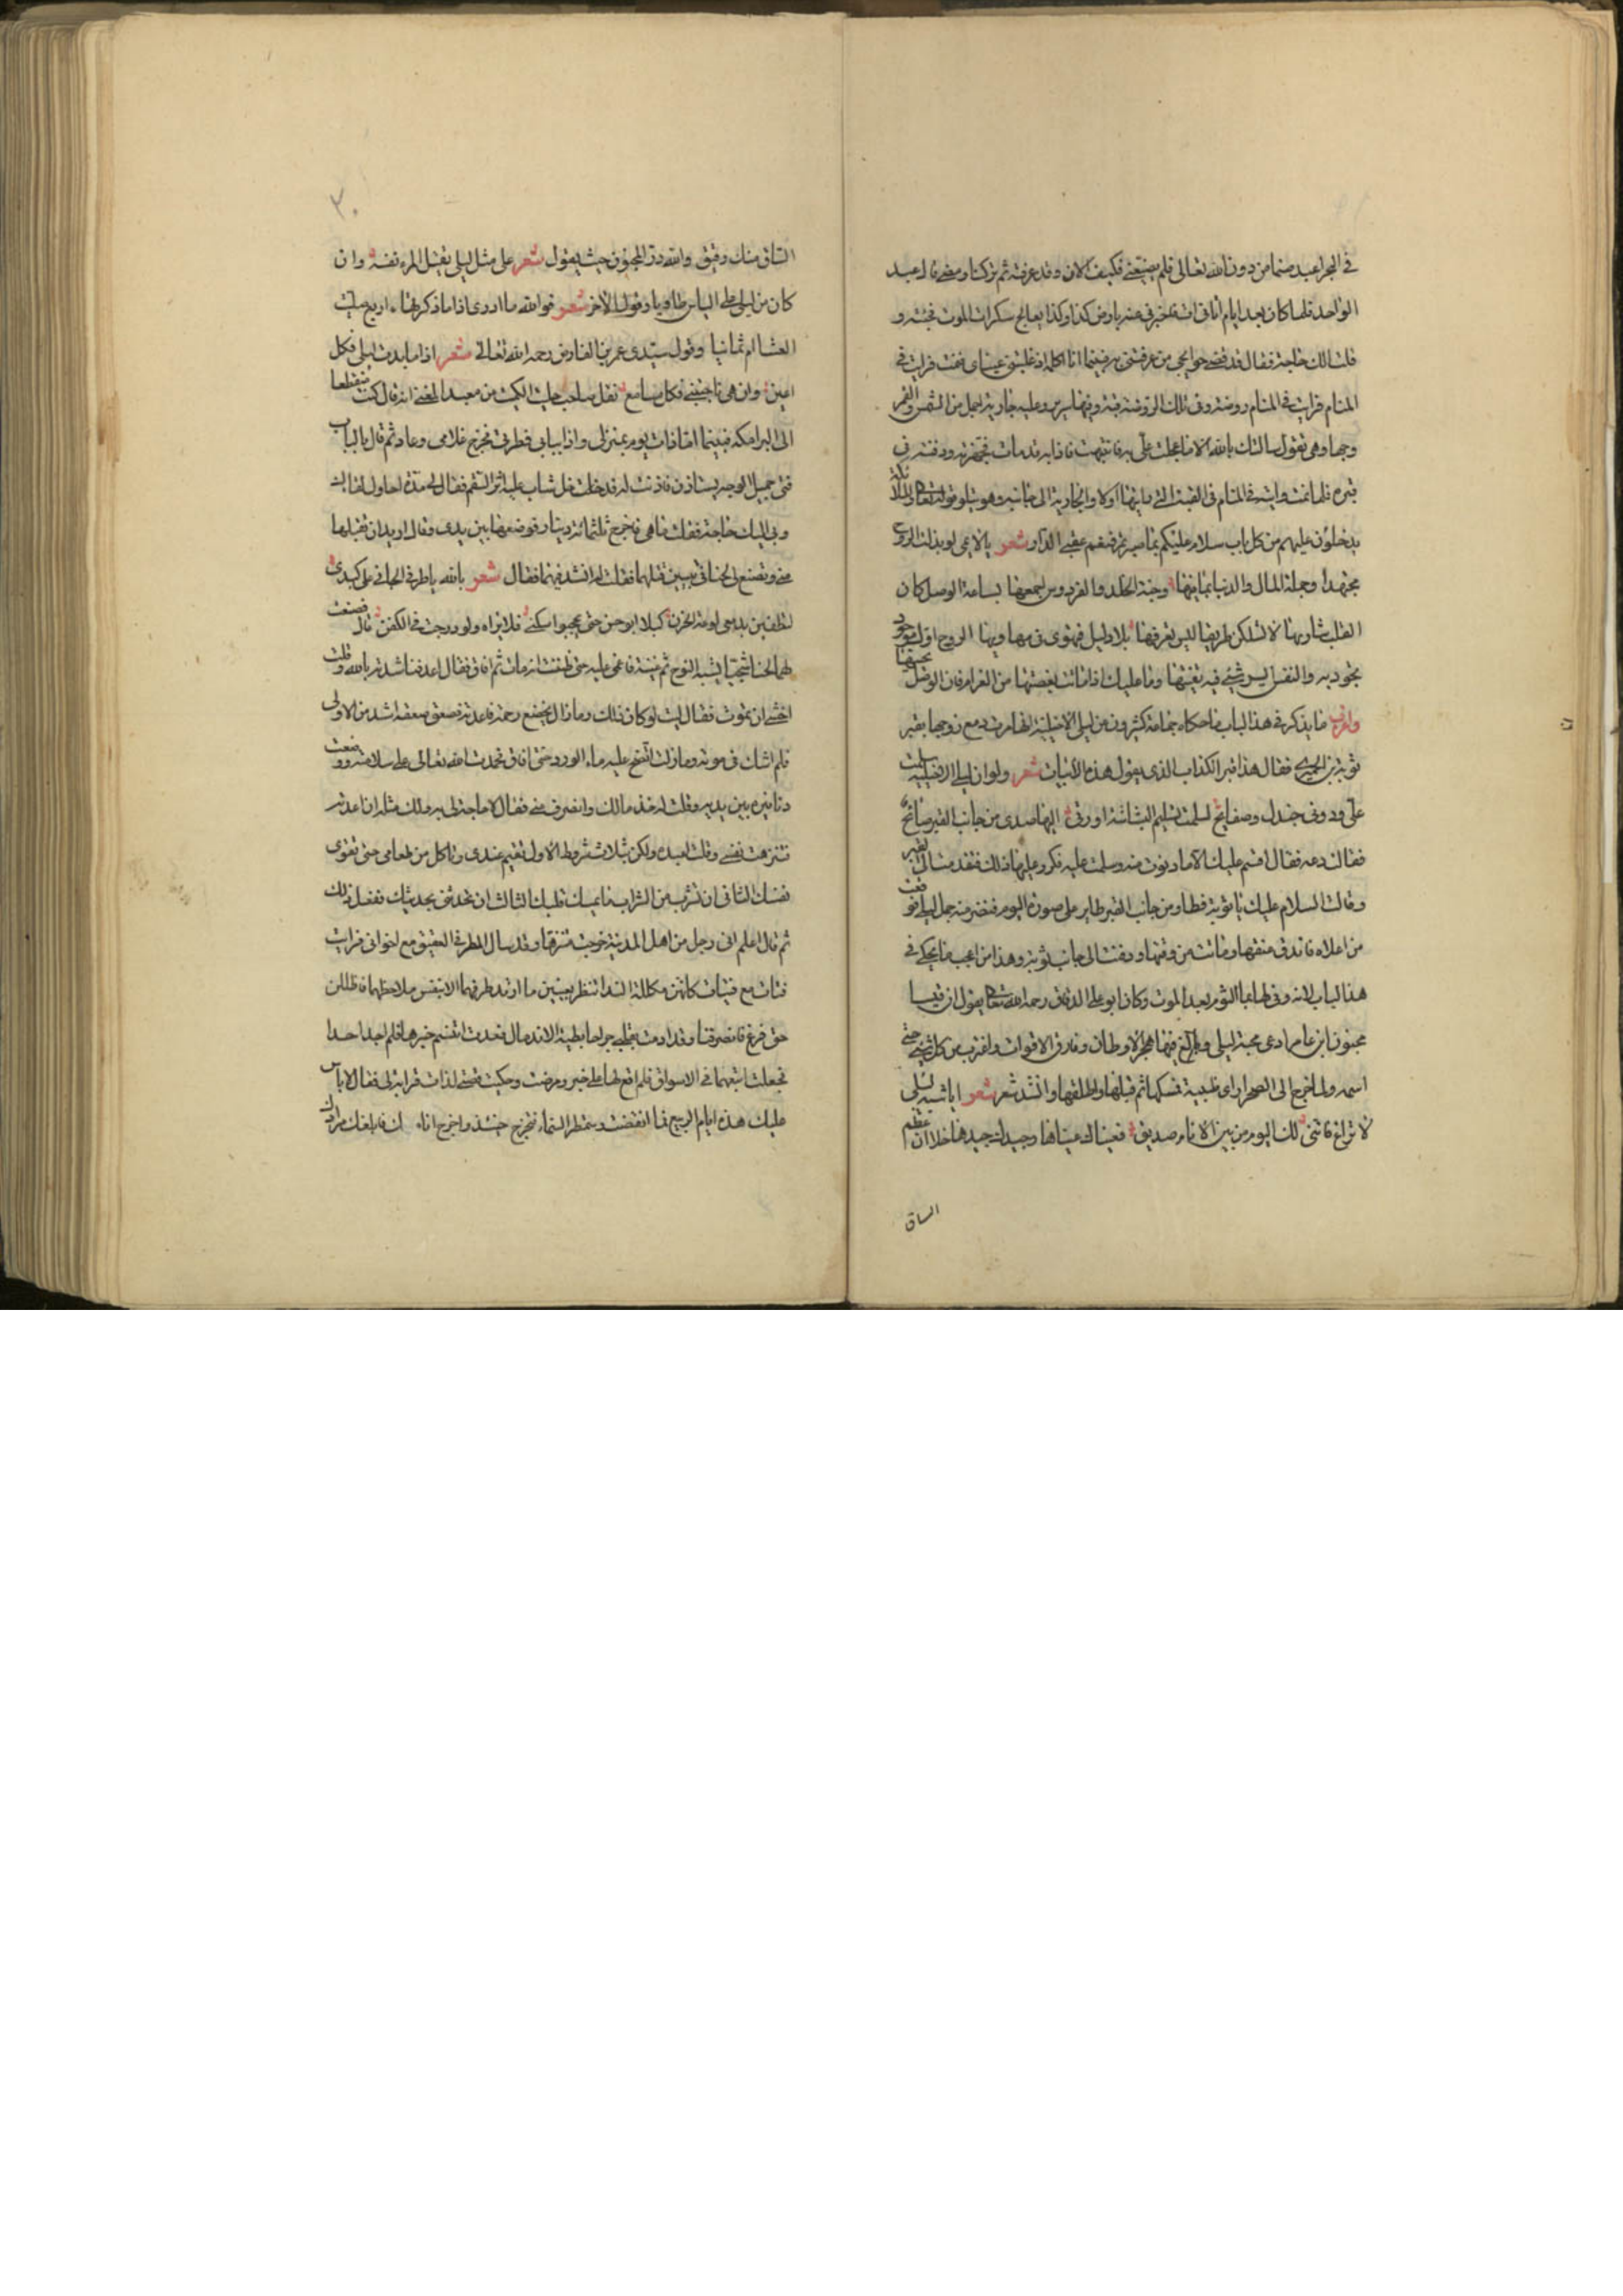 في البحر اعبد صنما من دون الله تعالى فلم يضيعني فكيف الان وقد عرفته ثم تركنا ومضى قال عبد
الواحد فلما كان بعد ايام اتاني ات فاخبرني عنه بارض كذا وكذا يعالج سكرات الموت فجئته و
قلت الك حاجة فقال قد قضى حوايجي من عرفتني به فبينما انا اكلمه اذ غلبتني عيناي فنمت فرايت في
المنام فرايت في المنام روضة وفي تلك الروضة قبة وفيها سرير وعليه جارية اجمل من الشمس والقمر
وجها وهي تقول سالتك بالله الا ما عجلت علي به فانتبهت فاذا به قد مات فجهزته ودفنته في
قبره فلما نمت رايته في المنام في القبة التي رايتها اولا والجارية الى جانبه وهو يتلو قوله تعالى والملائكة
يدخلون عليهم من كل باب سلام عليكم بما صبرتم فنعم عقبى الدار شعر يالائمي لو بذلت الروح
مجتهدا وجملة المال والدنيا بما فيها وجنة الخلد والفردوس اجمعها بساعة الوصل كان
القلب شاريها لا تسلكن طريقا لست تعرفها بلا دليل فتهوى في مهاويها الروح اول موجود
تجود به والنفس ايسر شيء فيه تفنيها وما عليك اذا ماتت بغصتها من الغرام فان الوصل يحييها
واغرب ما يذكر في هذا الباب ما حكاه جماعة كثيرون من ليلى الاخيلية انها مرت مع زوجها بقبر
توبة بن الحمير فقال هذا قبر الكذاب الذي يقول هذه الابيات شعر ولو ان ليلى الاخيلية سلمت
علي ودوني جندل وصفايح لسلمت تسليم البشاشة او زقى اليها صدى من جانب القبر صائح
فقالت دعه فقال اقسم عليك الا ما دنوت منه وسلمت عليه فكرر عليها ذلك فتقدمت الى القبر
وقالت السلام عليك يا توبة فطار من جانب القبر طاير على صورة البوم فنفر منه جمل ليلى فوقعت
من اعلاه فاندق عنقها وماتت من وقتها ودفنت الى جانب توبة وهذا من اعجب ما يحكى في
هذا الباب لانه وفى لها بما التزم بعد الموت وكان ابو علي الدقاق رحمه الله تعالى يقول ان قيسا
مجنون ابن عامر ادعى محبة ليلى وبالغ فيها فهجر الاوطان وفارق الاقوات واغترب من كل شيء حتى
اسمه ولما خرج الى الصحرا راى ظبية فمسكها ثم قبلها واطلقها وانشد شعر شعر ايا شبه ليلى
لا تراع فانني لك اليوم من بين الانام صديق فعيناك عيناها وجيدك جيدها خلا ان عظم
الساق
٣٠
الساق منك دقيق ولله در المجنون حيث يقول شعر على مثل ليلى يقتل المرء نفسه وان
كان من ليلى على الياس طاويا وقول الاخر شعر فوالله ما ادري اذا ما ذكرتها اربع صليت
العشا ام ثمانيا وقول سيدي عمر بن الفارض رحمه الله تعالى شعر اذا ما بدت ليلى فكل
اعين وان هي ناجتني فكلي مسامع نقل صاحب حلبة الكميت عن معبد المغني انه قال كنت منقطعا
الى البرامكة فبينما انا ذات يوم بمنزلي واذا ببابي قد طرق فخرج غلامي وعاد ثم قال بالباب
فتى جميل الوجه يستاذن فاذنت له فدخل شاب عليه اثر السقم فقال لي مدة احاول لقاك
وبي اليك حاجة فقلت ما هي فاخرج ثلثمائة دينار فوضعها بين يدي وقال اريد ان تقبلها
مني وتصنع لي لحنا في بيتين قلتهما فقلت له انشدنيهما فقال شعر بالله يا طرفي الجاني على كبدي
لتطفين بدمعي لوعة الحزن كيلا ابوحن حتى يحجبوا سكني فلا تراه ولو ادرجت في الكفن قال فصنعت
لهما لحنا شجيا يشبه النوح ثم غنيته فاغمي عليه حتى ظننت انه مات ثم افاق فقال اعد فناشدته بالله وقلت
اخشى ان تموت فقال ليت لو كان ذلك وما زال يخضع رحمة فاعدته فصعق صعقة اشد من الاولى
فلم اشك في موته وما زلت انضح عليه ماء الورد حتى افاق فحمدت الله تعالى على سلامته ووضعت
دنانيره بين يديه وقلت له خذ مالك وانصرف عني فقال لا حاجة لي به ولك مثله ان اعدته
فشرهت نفسي وقلت اعيده ولكن بثلاثة شروط الاول تقيم عندي وتاكل من طعامي حتى تقوى
نفسك الثاني ان تشرب من الشراب ما يمسك قلبك الثالث ان تحدثني بحديثك ففعل ذلك
ثم قال اعلم اني رجل من اهل المدينة خرجت متنزها وقد سال المطر في العقيق مع اخواني فرايت
فتاة مع فتيات كانهن مكللة الندا تنظر بعينين ما ارتد طرفهما الا بنفس ملاحظهما فاظللن
حتى فرغ فانصرفنا وقد ادمت بقلبي جراحا بطية الاندمال فغدت اتنسم خبرها فلم اجد احدا
فجعلت اتبعها في الاسواق فلم اقع لها على خبر ومرضت وحكيت قصتي لذات قرابة لي فقال لا باس
عليك هذه ايام الربيع ما انقضت وستمطر السماء فتخرج حينئذ واخرج انا